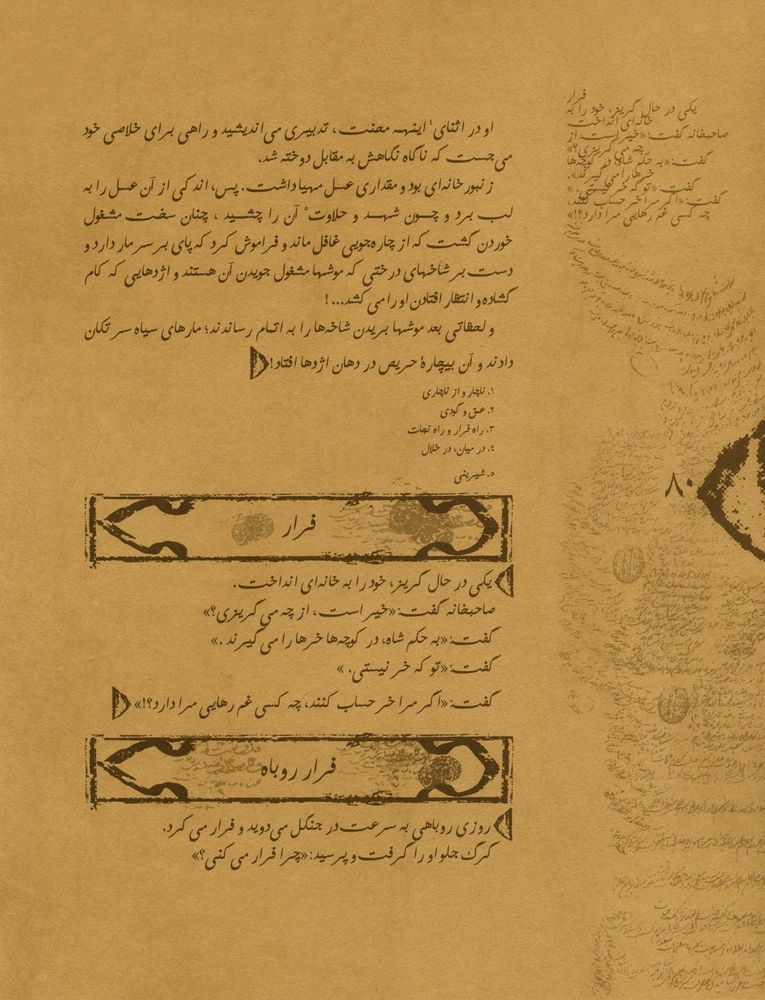 او در اثنای⁴ اینهمه محنت، تدبیری می‌اندیشید و راهی برای خلاصی خود
می‌جست که ناگاه نگاهش به مقابل دوخته شد.
زنبورخانه‌ای بود و مقداری عسل مهیا داشت. پس، اندکی از آن عسل را به
لب برد و چون شهد و حلاوت⁵ آن را چشید، چنان سخت مشغول
خوردن گشت که از چاره‌جویی غافل ماند و فراموش کرد که پای بر سر مار دارد و
دست بر شاخهای درختی که موشها مشغول جویدن آن هستند و اژدهایی که کام
گشاده و انتظار افتادن او را می‌کشد...!
و لحظاتی بعد موشها بریدن شاخه‌ها را به اتمام رساندند؛ مارهای سیاه سر تکان
دادند و آن بیچارهٔ حریص در دهان اژدها افتاد!
۱. ناچار و از ناچاری
۲. عمق و گودی
۳. راه فرار و راه نجات
۴. در میان، در خلال
۵. شیرینی
فرار
یکی در حال گریز، خود را به خانه‌ای انداخت.
صاحبخانه گفت: «خیر است، از چه می‌گریزی؟»
گفت: «به حکم شاه، در کوچه‌ها خرها را می‌گیرند.»
گفت: «تو که خر نیستی.»
گفت: «اگر مرا خر حساب کنند، چه کسی غم رهایی مرا دارد؟!»
فرار روباه
روزی روباهی به سرعت در جنگل می‌دوید و فرار می‌کرد.
گرگ جلو او را گرفت و پرسید: «چرا فرار می‌کنی؟»
فرار
یکی در حال گریز، خود را به
خانه‌ای انداخت.
صاحبخانه گفت: «خیر است، از
چه می‌گریزی؟»
گفت: «به حکم شاه، در کوچه‌ها
خرها را می‌گیرند.»
گفت: «تو که خر نیستی.»
گفت: «اگر مرا خر حساب کنند،
چه کسی غم رهایی مرا دارد؟!»
۸۰